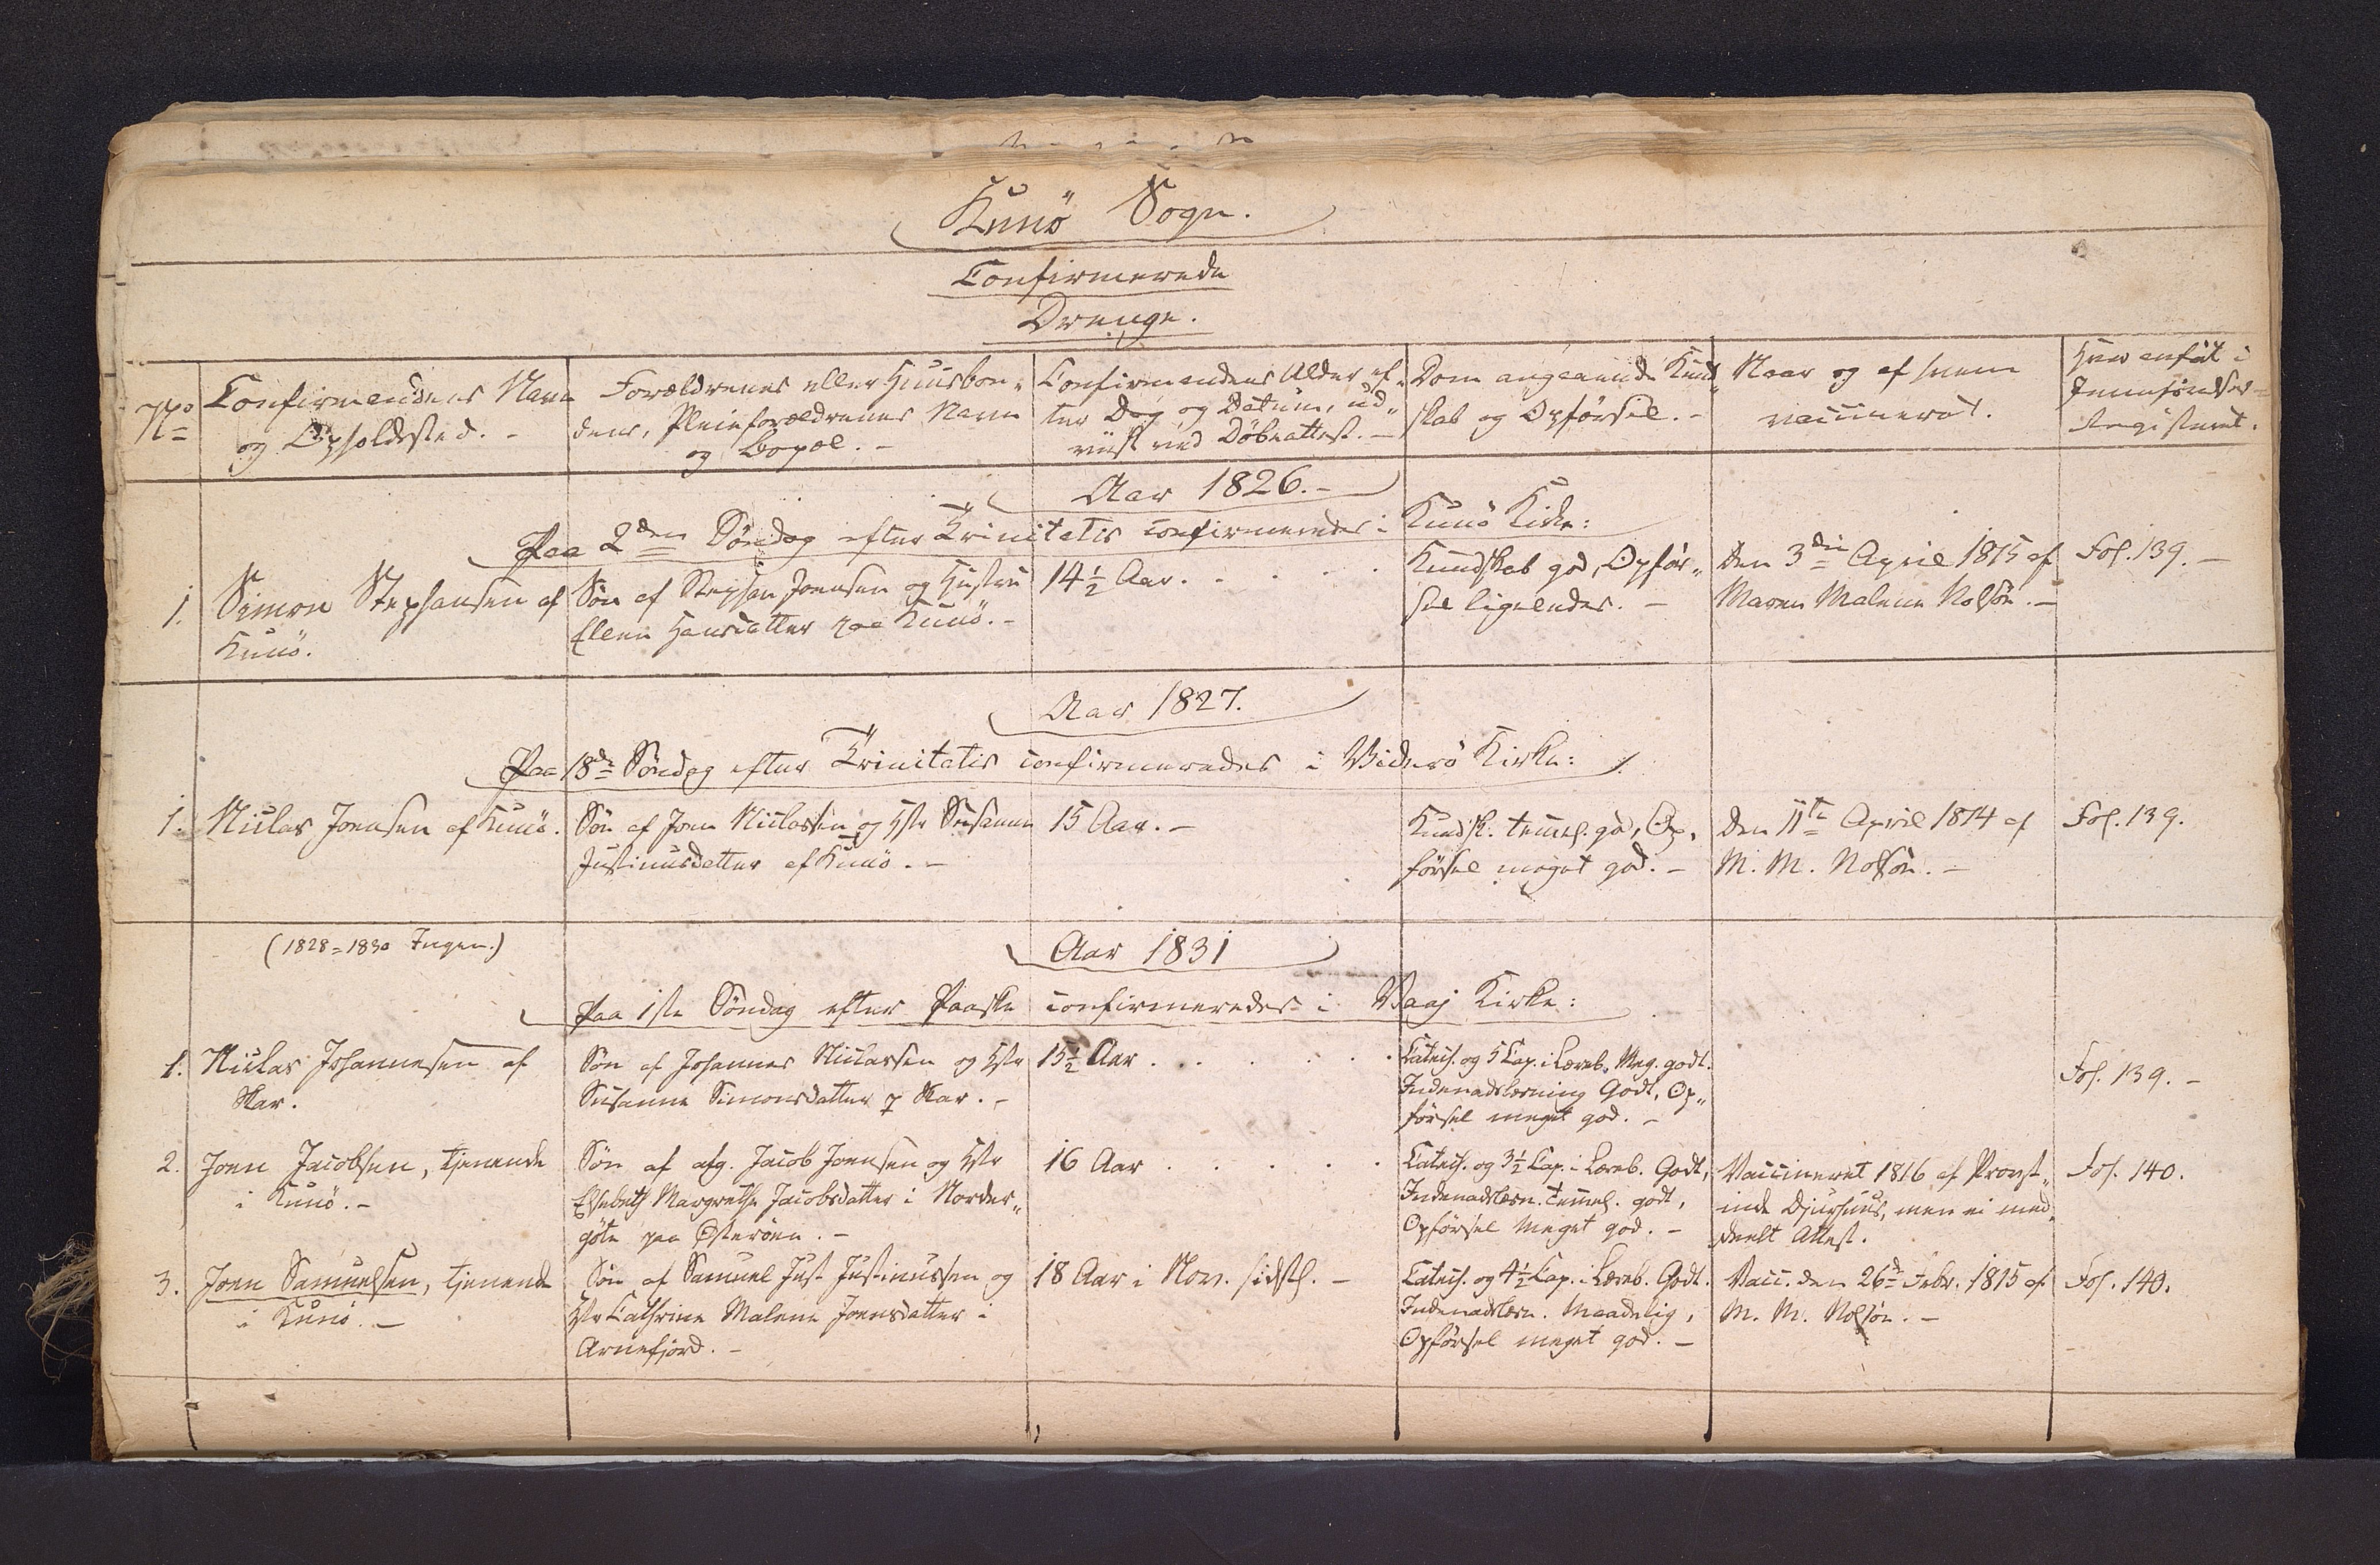 Kunö Sogn.
Confirmerede
Drenge.
No
Confirmandens Navn
og Opholdsted. -
Forældrenes eller Huusbon„
dens, Pleieforældrenes Navn
og Bopæl. -
Confirmandens Alder ef„
ter Dag og Datum, ud„
viist ved Döbeattest. -
Dom angaaende Kund„
skab og Opförsel. -
Naar og af hvem
vaccineret.
Hvor anfört i
Jevnförelses-
Registeret.
Aar 1826. -
Paa 2den Söndag efter Trinitatis confirmeredes i Kunö Kirke:
1. Simon Stephansen af
Kunö.
Sön af Stephan Joensen og Hustru
Ellen Hansdatter paa Kunö. -
14½ Aar. . . . .
Kundskab god, Opför„
sel ligeledes. -
Den 3die April 1815 af
Maren Malene Nolsön. -
Fol. 139. -
Aar 1827.
Paa 18de Söndag efter Trinitatis confirmeredes i Viderö Kirke:
1. Niclas Joensen af Kunö.
Sön af Joen Niclassen og Hstr Susanne
Justinusdatter af Kunö. -
15 Aar. -
Kundsk. temmel. god, Op„
försel meget god. -
Den 11te April 1814 af
M. M. Nolsön. -
Fol. 139.
(1828=1830 Ingen.)
Aar 1831
Paa 1ste Söndag efter Paaske confirmeredes i Vaaj Kirke:
1. Niclas Johannesen af
Skar.
Sön af Johannes Niclassen og Hstr
Susanne Simonsdatter p Skar. -
15½ Aar . . . . . .
Catech. og 5 Cap. i Læreb. Meg. godt.
Indenadslæsning Godt, Op„
försel meget god. -
Fol. 139. -
2. Joen Jacobsen, tjenende
i Kunö. -
Sön af afg. Jacob Joensen og Hstr
Elsebeth Margrethe Jacobsdatter i Norder„
göte paa Österöen. -
16 Aar . . . . .
Catech. og 3½ Cap. i Læreb. Godt,
Indenadslæsn. temmel. godt,
Opförsel meget god. -
Vaccineret 1816 af Provst„
inde Djurhuus, men ei med„
deelt Attest.
Fol. 140.
3. Joen Samuelsen, tjenende
i Kunö. -
Sön af Samuel Just Justinussen og
Hstr Cathrine Malene Joensdatter i
Arnefjord. -
18 Aar i Nov. sidstl. -
Catech. og 4½ Cap. i Læreb. Godt.
Indenadslæsn. maadelig,
Opförsel meget god. -
Vacc. den 26de Febr. 1815 af
M. M. Nolsön. -
Fol. 140.